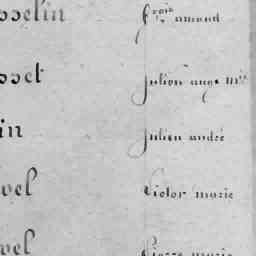 sselin frçois amand
sset julien auge mie
in julien andré
vel victor marie
vel pierre marie